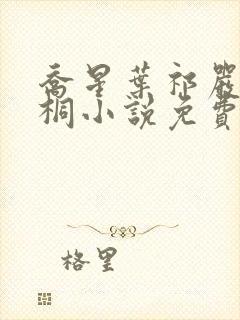 喬星葉祁嚴
桐小說免費
格里